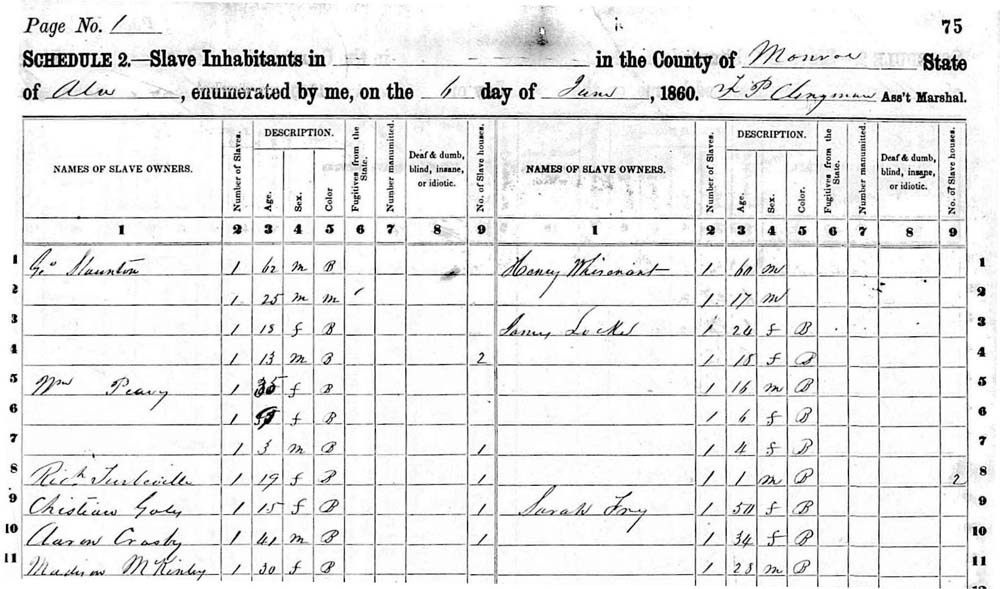 Page No. 1
75
SCHEDULE 2.—Slave Inhabitants in - - - - in the County of Monroe State
of Ala, enumerated by me, on the 6 day of June, 1860. F P Clingman Ass't Marshal.
NAMES OF SLAVE OWNERS. Number of Slaves. DESCRIPTION. Age. Sex. Color Fugitives from the State. Number manumitted. Deaf & dumb, blind, insane, or idiotic. No. of Slave houses. NAMES OF SLAVE OWNERS. Number of Slaves. DESCRIPTION. Age. Sex. Color. Fugitives from the State. Number manumitted. Deaf & dumb, blind, insane, or idiotic. No. of Slave houses.
1 2 3 4 5 6 7 8 9 1 2 3 4 5 6 7 8 9
1 Geo Staunton 1 62 m B Henry Whisenant 1 60 m 1
2 1 25 m m 1 17 m 2
3 1 18 f B Locke 1 24 f B 3
4 1 13 m B 2 1 18 f B 4
5 Wm Peavy 1 35 f B 1 16 m B 5
6 1 f B 1 6 f B 6
7 1 3 m B 1 1 4 f B 7
8 Rich 1 19 f B 1 1 1 m B 2 8
9 Christian 1 15 f B 1 Sarah Fry 1 50 f B 9
10 Aaron Crosby 1 41 m B 1 1 34 f B 10
11 Madison McKinley 1 30 f B 1 28 m B 11